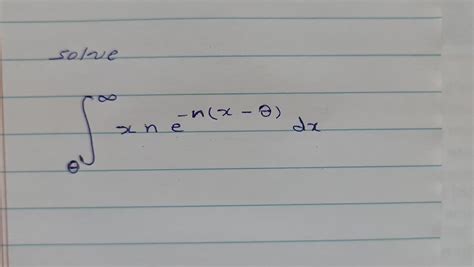 solve
∫_θ^∞ x n e^{-n(x - θ)} dx